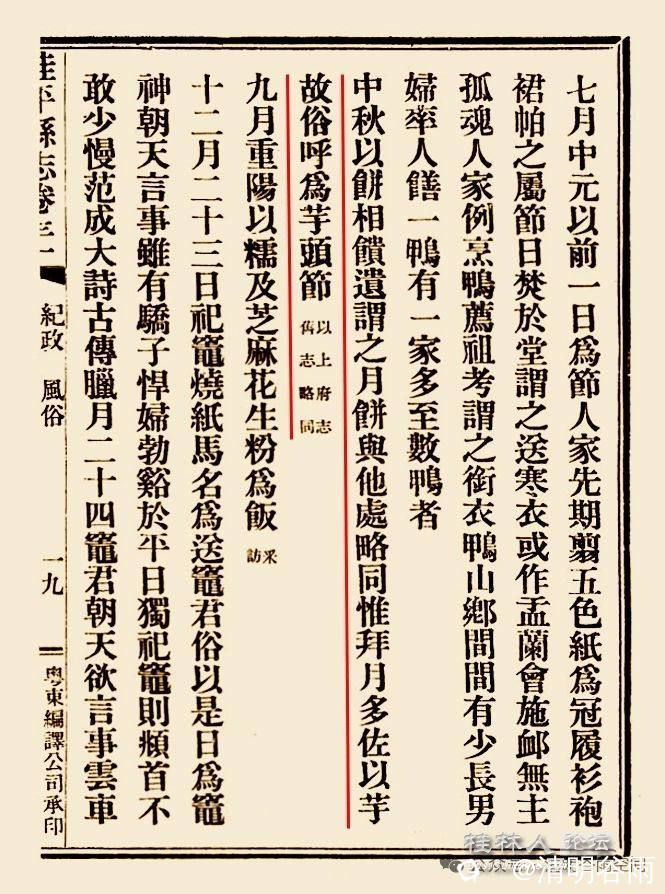 七月中元以前一日爲節人家先期翦五色紙爲冠履衫袍
裙帕之屬節日焚於堂謂之送寒衣或作盂蘭會施卹無主
孤魂人家例烹鴨薦祖考謂之銜衣鴨山鄉間間有少長男
婦率人饍一鴨有一家多至數鴨者
中秋以餅相饋遺謂之月餅與他處略同惟拜月多佐以芋
故俗呼爲芋頭節以上府志舊志略同
九月重陽以糯及芝麻花生粉爲飯采訪
十二月二十三日祀竈燒紙馬名爲送竈君俗以是日爲竈
神朝天言事雖有驕子悍婦勃谿於平日獨祀竈則頫首不
敢少慢范成大詩古傳臘月二十四竈君朝天欲言事雲車
桂平縣志卷三一 紀政 風俗 一九 粵東編譯公司承印
桂林人论坛
@清明谷雨